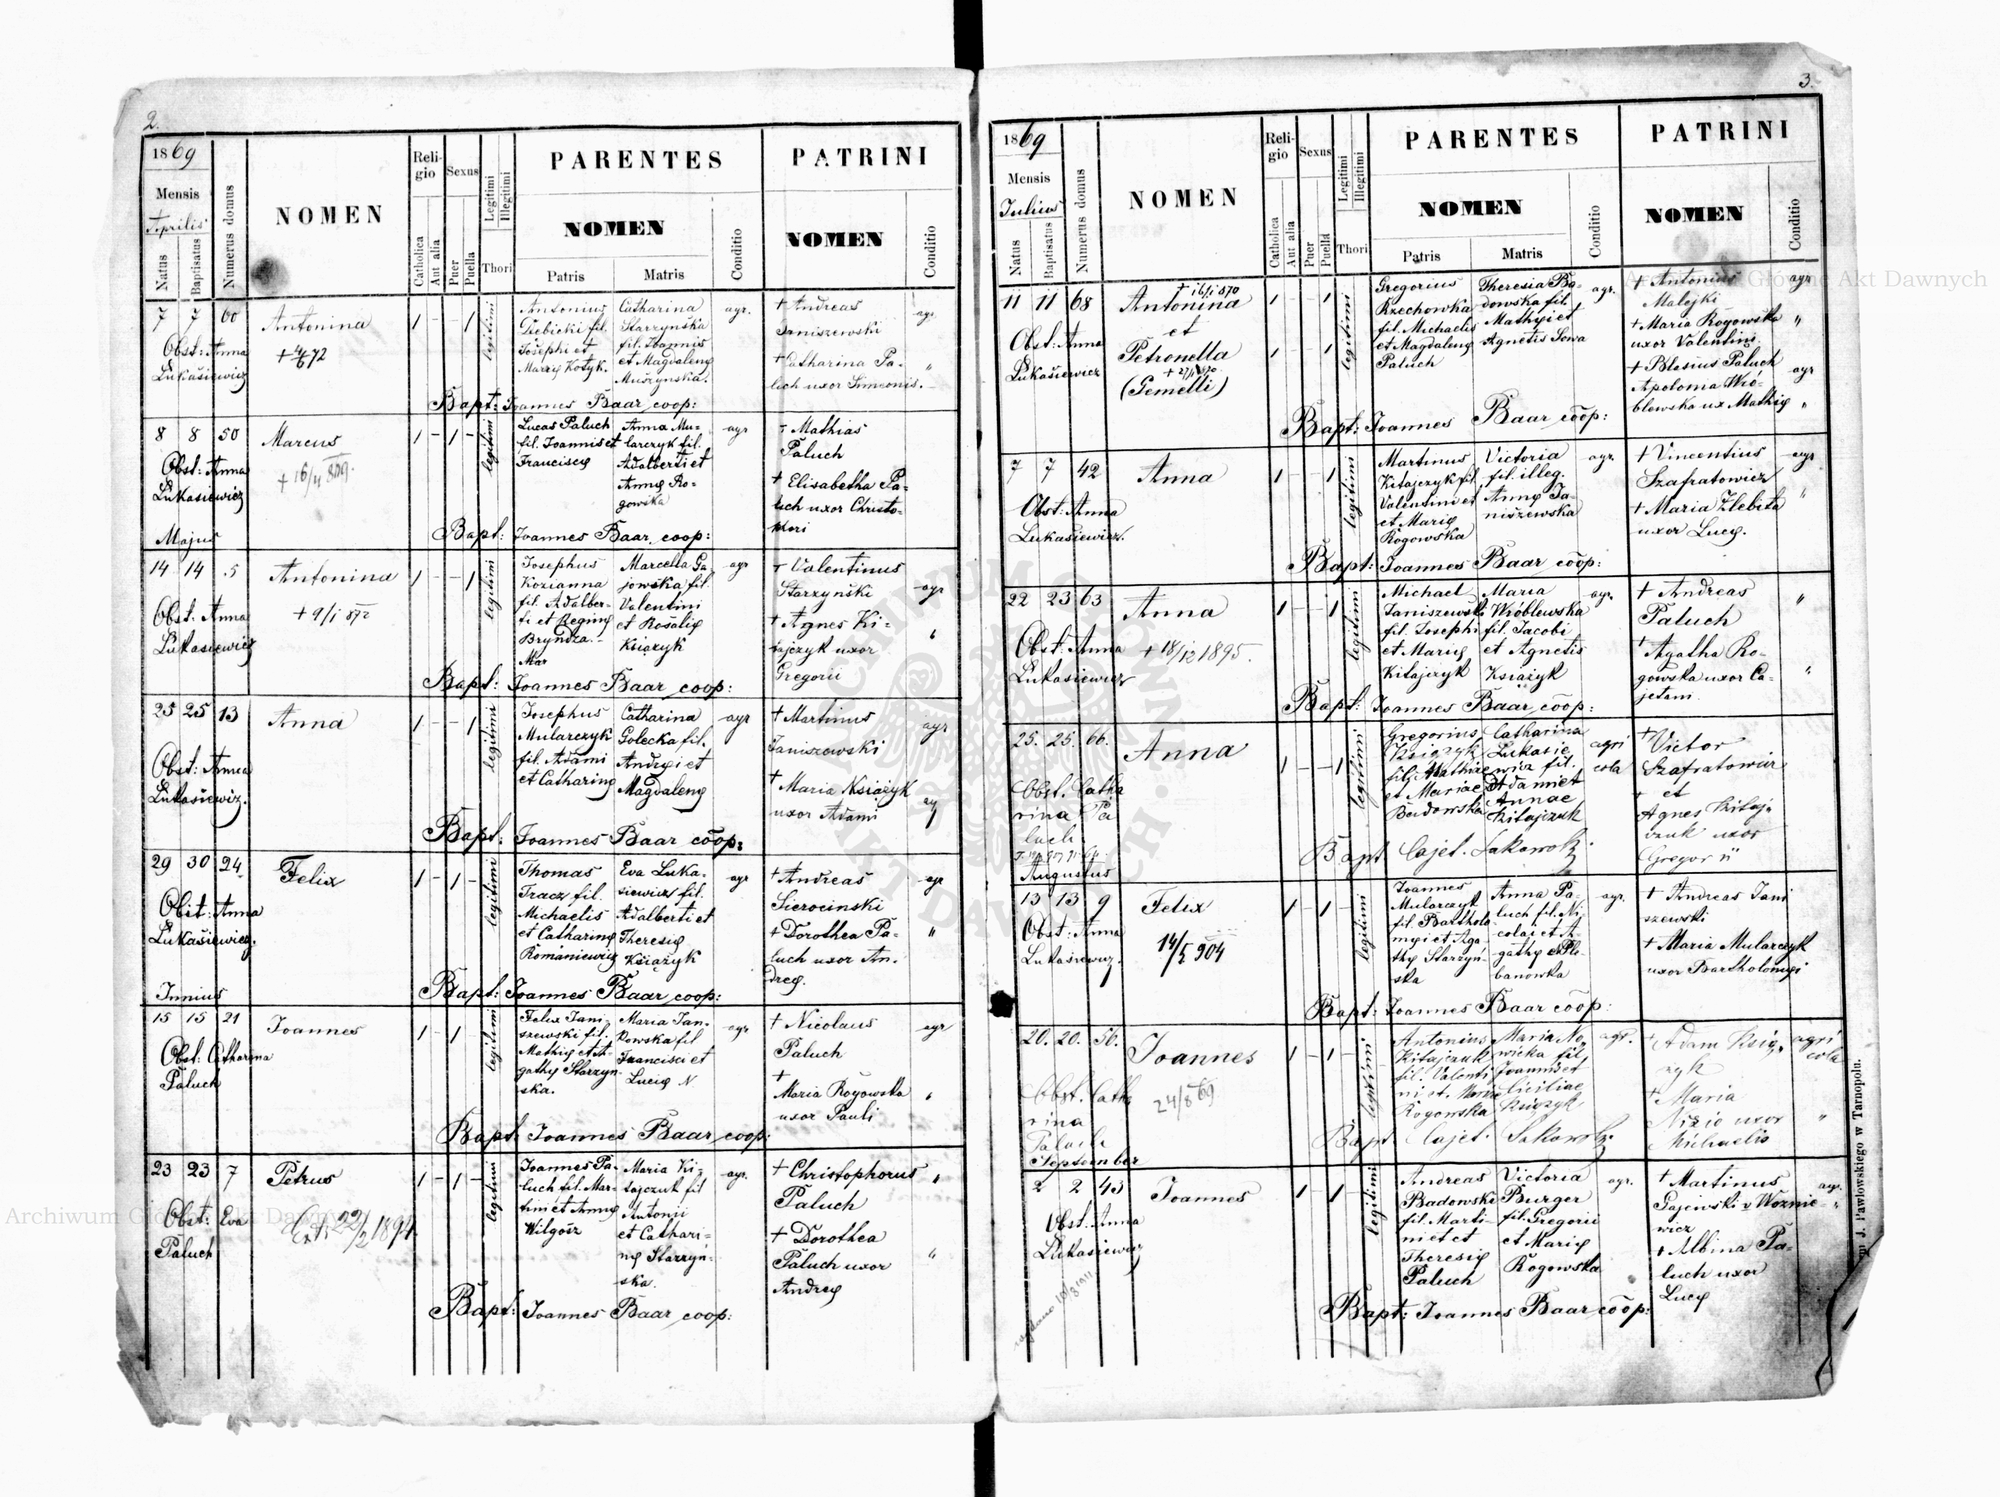 2.
1869
Mensis
Aprilis
Natus
Baptisatus
Numerus domus
NOMEN
Religio
Catholica
Aut alia
Sexus
Puer
Puella
Legitimi
Illegitimi
Thori
PARENTES
NOMEN
Patris
Matris
Conditio
PATRINI
NOMEN
Conditio
7 7 60
Obst: Anna
Lukasiewicz
Antonina
1 - - 1
legitimi
Antonius
fil.
Josephi et
Catharina
Starzyńska
fil. Joannis
et Magdaleny
Muszynska.
agr.
† Andreas
Janiszewski
† Catharina Pa-
luch uxor Simeonis.
agr.
"
Bapt: Joannes Baar coop:
8 8 50
Obst: Anna
Lukasiewicz
Marcus
1 - 1 -
legitimi
Lucas Paluch
fil. Joannis et
Anna Mu-
larczyk fil.
Adalberti et
Anny Ro-
gowska
agr
† Mathias
Paluch
† Elisabetha Pa-
luch uxor Christo-
phori
Bapt: Joannes Baar coop:
Majus
14 14 5
Obst: Anna
Lukasiewicz
Antonina
1 - - 1
legitimi
Josephus
Kozianna
fil. Adalber-
ti et Reginy
Bryndza.
Mar
Marcella Ga-
jowska fil.
Valentini
et Rosalię
Książyk
agr
† Valentinus
Starzyński
† Agnes Ki-
tajczyk uxor
Gregorii
agr
"
Bapt: Joannes Baar coop:
25 25 13
Obst: Anna
Lukasiewicz.
Anna
1 - - 1
legitimi
Josephus
Mularczyk
fil. Adami
et Catharinę
Catharina
Golecka fil.
Andreji et
Magdaleny
agr
† Martinus
Janiszowski
† Maria Książyk
uxor Adami
agr
Bapt: Joannes Baar coop:
29 30 24
Obst: Anna
Lukasiewicz.
Felix
1 - 1 -
legitimi
Thomas
Tracz fil.
Michaelis
et Catharinę
Eva Luka-
siewicz fil.
Adalberti et
Theresię
Książyk
agr
† Andreas
Sierocinski
† Dorothea Pa-
luch uxor An-
dreę.
agr
"
Bapt: Joannes Baar coop:
Junius
15 15 21
Obst: Catharina
Paluch
Joannes
1 - 1 -
legitimi
Felix Jani-
szewski fil.
Mathię et A-
gathy Starzyn-
ska.
Maria Jan-
kowska fil
Francisci et
Lucię N
agr
† Nicolaus
Paluch
†
Maria Rogowska
uxor Pauli
agr
"
Bapt: Joannes Baar coop:
23 23 7
Obst: Eva
Paluch
Petrus
1 - 1 -
legitimi
Joannes Pa-
luch fil. Mar-
tini et Annę
Maria Ki-
tajczuk fil
Antonii
et Cathari-
nę Starzyn-
ska.
agr.
† Christophorus
Paluch
† Dorothea
Paluch uxor
Andreę
"
"
Bapt: Joannes Baar coop:
3.
1869
Mensis
Julius
Natus
Baptisatus
Numerus domus
NOMEN
Religio
Catholica
Aut alia
Sexus
Puer
Puella
Legitimi
Illegitimi
Thori
PARENTES
NOMEN
Patris
Matris
Conditio
PATRINI
NOMEN
Conditio
11 11 68
Obst: Anna
Lukasiewicz
Antonina
et
Petronella
(Gemelli)
1 - - 1
1 - - 1
legitimi
Gregorius
Rzechowka
fil. Michaelis
et Magdalenę
Paluch
Theresia Ba-
dowska fil.
Mathię et
Agnetis Sowa
agr.
† Antonius
Malejki
† Maria Rogowska
uxor Valentini
† Blasius Paluch
Apolonia Wró-
blewska ux Mathię
agr
"
agr
"
Bapt: Joannes Baar coop:
7 7 42
Obst: Anna
Lukasiewicz.
Anna
1 - - 1
legitimi
Martinus
Kitajczyk fil.
Valentini et
et Marię
Rogowska
Victoria
fil. illeg.
Annę Ja-
niszewska
agr.
† Vincentius
Szafratowicz
† Maria
uxor Lucę.
agr
"
Bapt: Joannes Baar coop:
22 23 63
Obst: Anna
Lukasiewicz
Anna
† 18/12 1895.
1 - - 1
legitimi
Michael
Janiszewski
fil. Josephi
et Marię
Kitajczyk
Maria
Wróblewska
fil. Jacobi
et Agnetis
Książyk
agr.
† Andreas
Paluch
† Agatha Ro-
gowska uxor Ca-
jetani
"
"
Bapt: Joannes Baar coop:
25. 25. 66.
Obst. Catha
rina Pa
luch
Anna
1 - - 1
legitimi
Gregorius
Książyk
et Mariae
Badowska
Catharina
Lukasie
wicz fil.
Adami et
Annae
Kitajczuk
agri
cola
†
Victor
Szafratowicz
et
Agnes Kitaj-
czuk uxor
Gregorii
Bapt Cajet. Sakowski
Augustus
13 13 9
Obst: Anna
Lukasiewicz.
Felix
14/5 904
1 - 1 -
legitimi
Joannes
Mularczyk
fil. Bartholo-
męi et Aga-
thę Starzyn-
ska
Anna Pa-
luch fil. Ni-
colai et A-
gathy
banowska
agr.
† Andreas Jani
szewski
† Maria Mularczyk
uxor Bartholomęi
Bapt: Joannes Baar coop:
20. 20. 56.
Obst. Catha
rina
Paluch
Joannes
24/8 69
1 - 1 -
legitimi
Antonius
Kitajczuk
fil. Valenti
ni et Maria
Rogowska
Maria No-
wicka fil.
Joannis et
Ceciliae
Książyk
agr.
† Adam Książ-
zyk
† Maria
Nizio uxor
Michaelis
agri
cola
"
Bapt Cajet. Sakowski
September
2 2 43
Obst: Anna
Lukasiewicz
Joannes
1 - 1 -
legitimi
Andreas
Badowski
fil. Marti-
ni et
Theresię
Paluch
Victoria
Burger
fil. Gregorii
et Marię
Rogowska
agr.
† Martinus
Gajewski v Woznie-
wicz
† Albina Pa-
luch uxor
Lucę
agr.
"
Bapt: Joannes Baar coop:
J. Pawłowskiego w Tarnopolu.
Archiwum Główne Akt Dawnych
Archiwum Główne Akt Dawnych
ARCHIWUM GŁÓWNE AKT DAWNYCH